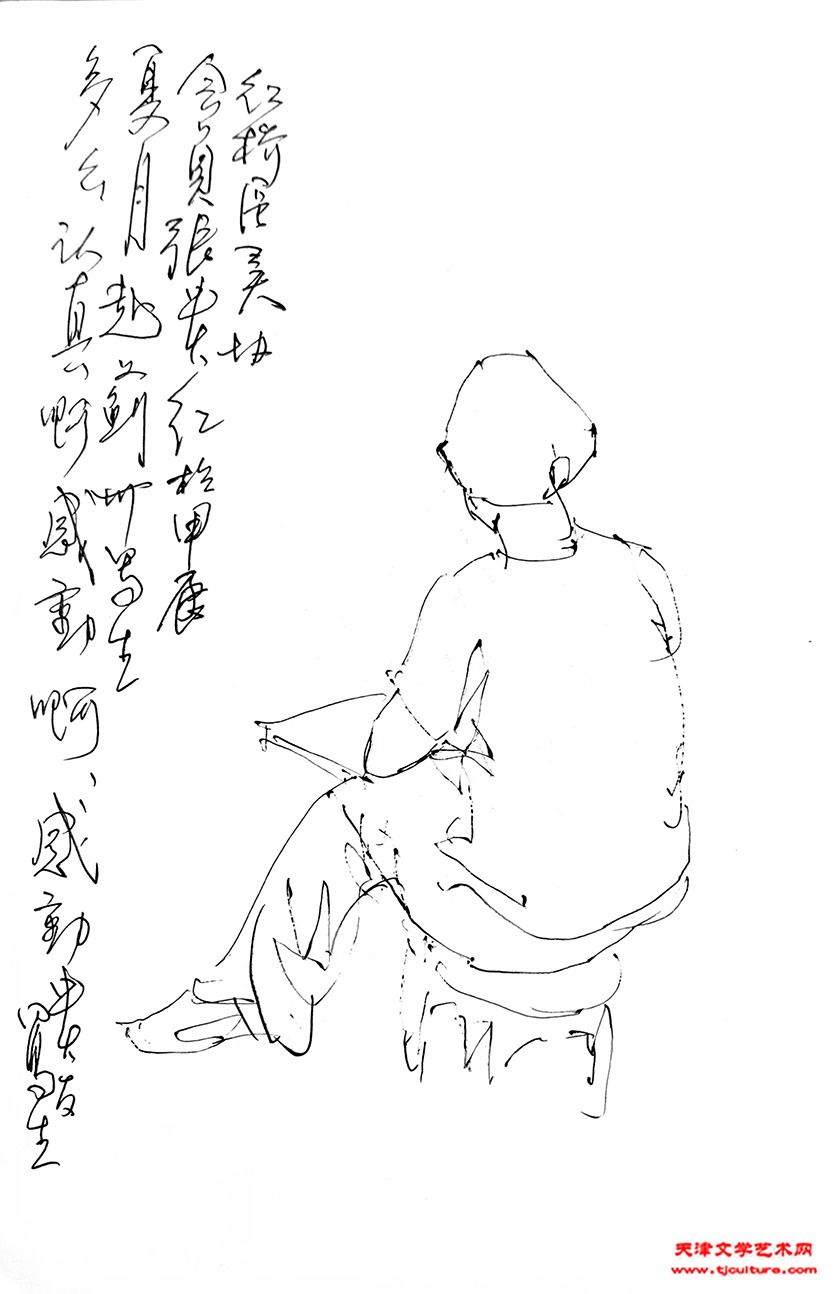 红桥区美协
会员张贵红于甲辰
夏月赴蓟州写生
多么认真啊感动啊、感动
写生
天津文学艺术网
www.tjculture.com